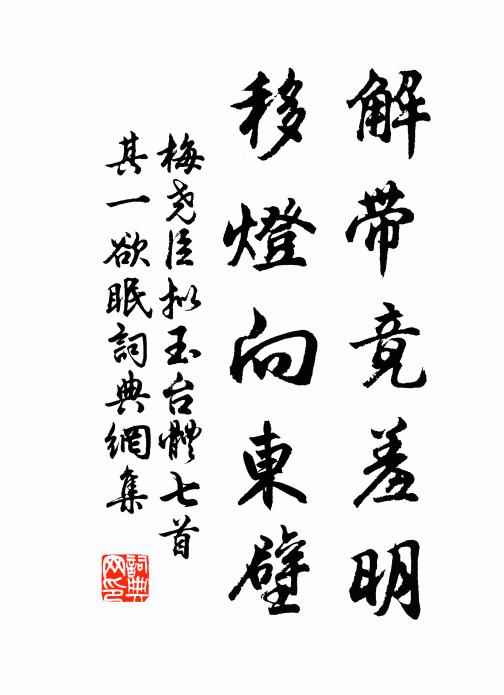 解帶竟羞明
移燈向東壁
梅尧臣拟玉台體七首
其一欲眠詞典網集
詞典
网印